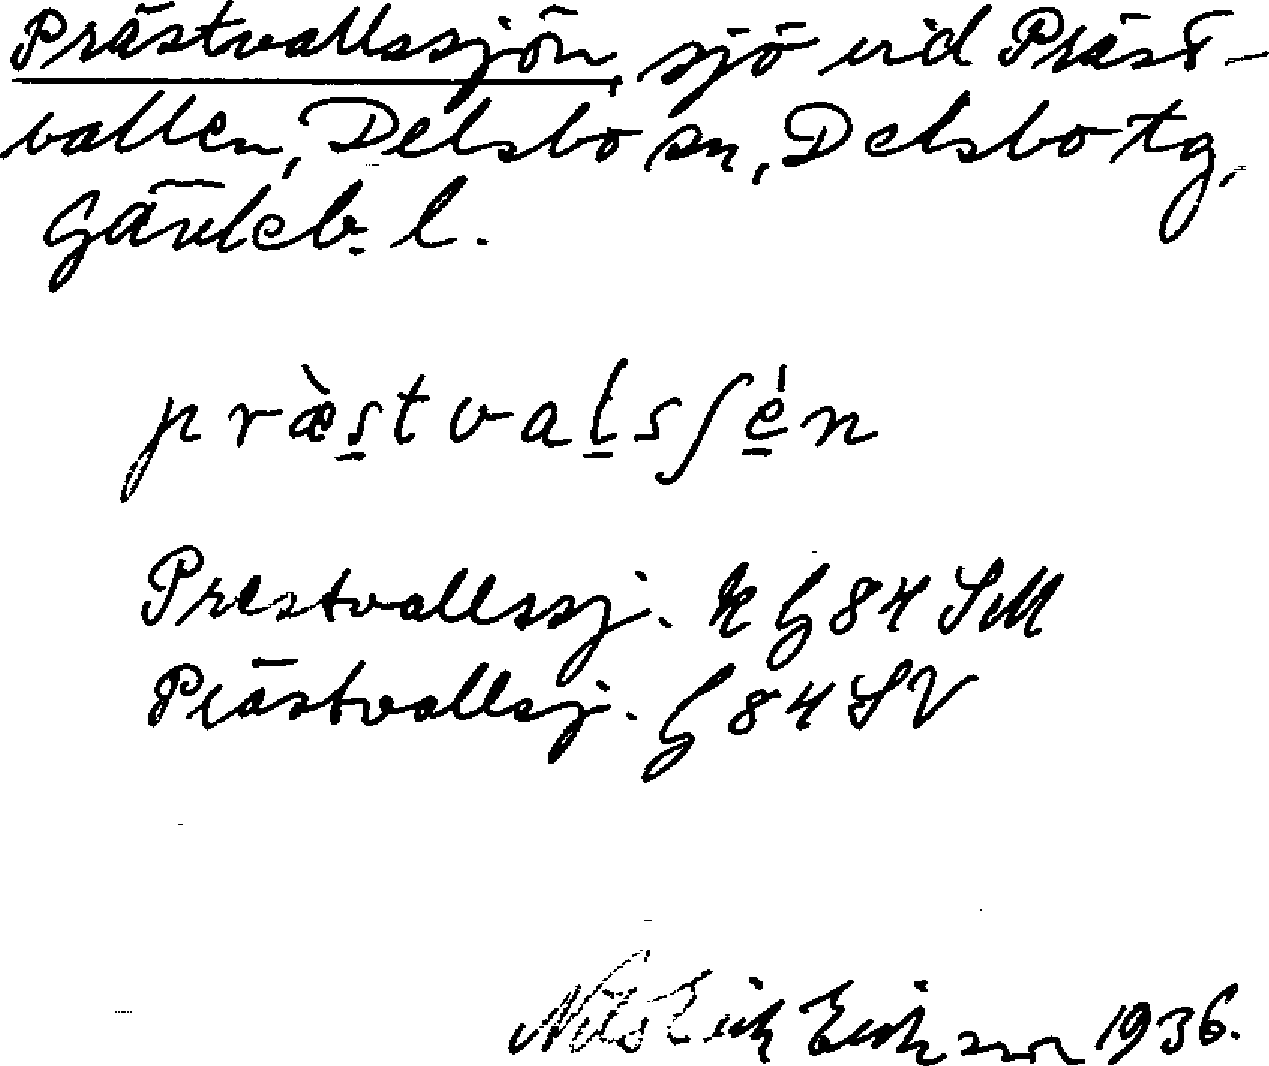 Prästvallssjön, sjö vid Präst-
vallen, Delsbo sn, Delsbo tg,
Gävleb. l.
præ̀s̲tval̲sʃe̲̍n
Prestvallssj. K G 84 SM
Prästvallsj. G 84 SV
Nils Erik Eriksson 1936.